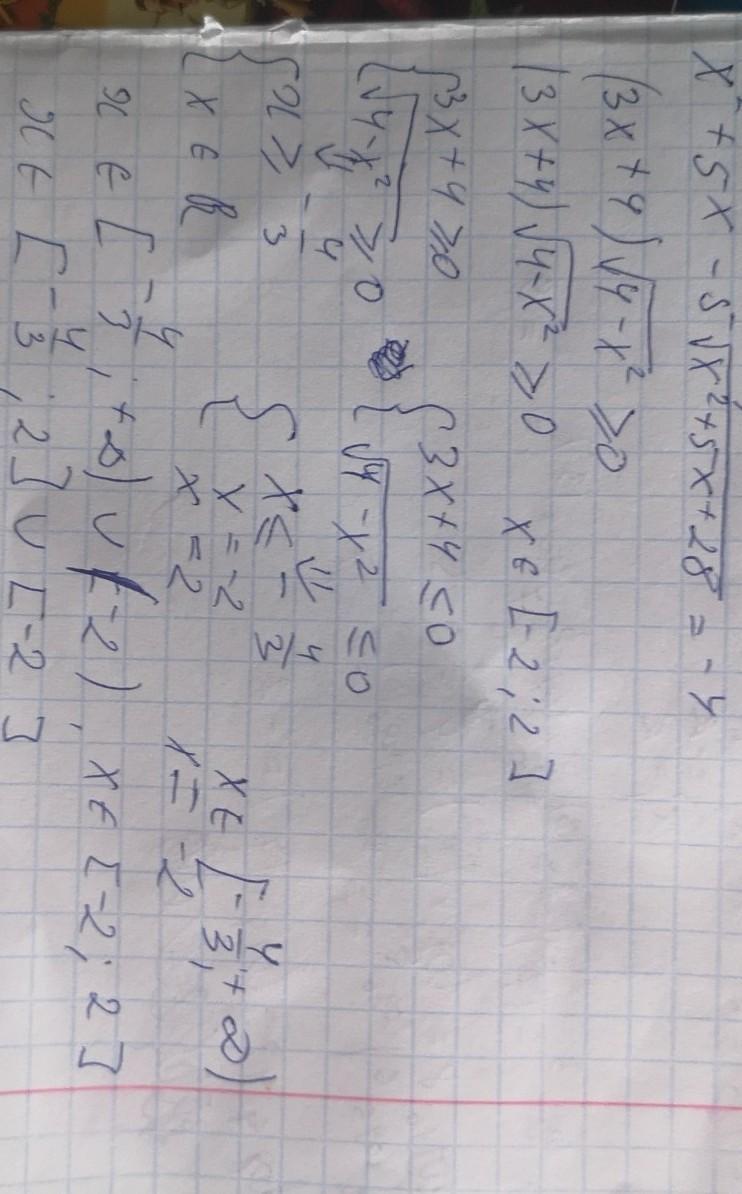 x² + 5x - 5√x²+5x+28 = -4
(3x+4)√4-x² ≥ 0
(3x+4)√4-x² ≥ 0   x ∈ [-2; 2]
{ 3x+4 ≥ 0   { 3x+4 ≤ 0
√4-x² ≥ 0   √4-x² ≤ 0
⇓   ⇓
{ x ≥ -4/3   { x ≤ -4/3
x ∈ R   x = -2
x = 2
x ∈ [-4/3; +∞)
x = -2
x ∈ [-4/3; +∞) ∪ (-2), x ∈ [-2; 2]
x ∈ [-4/3; 2] ∪ [-2]